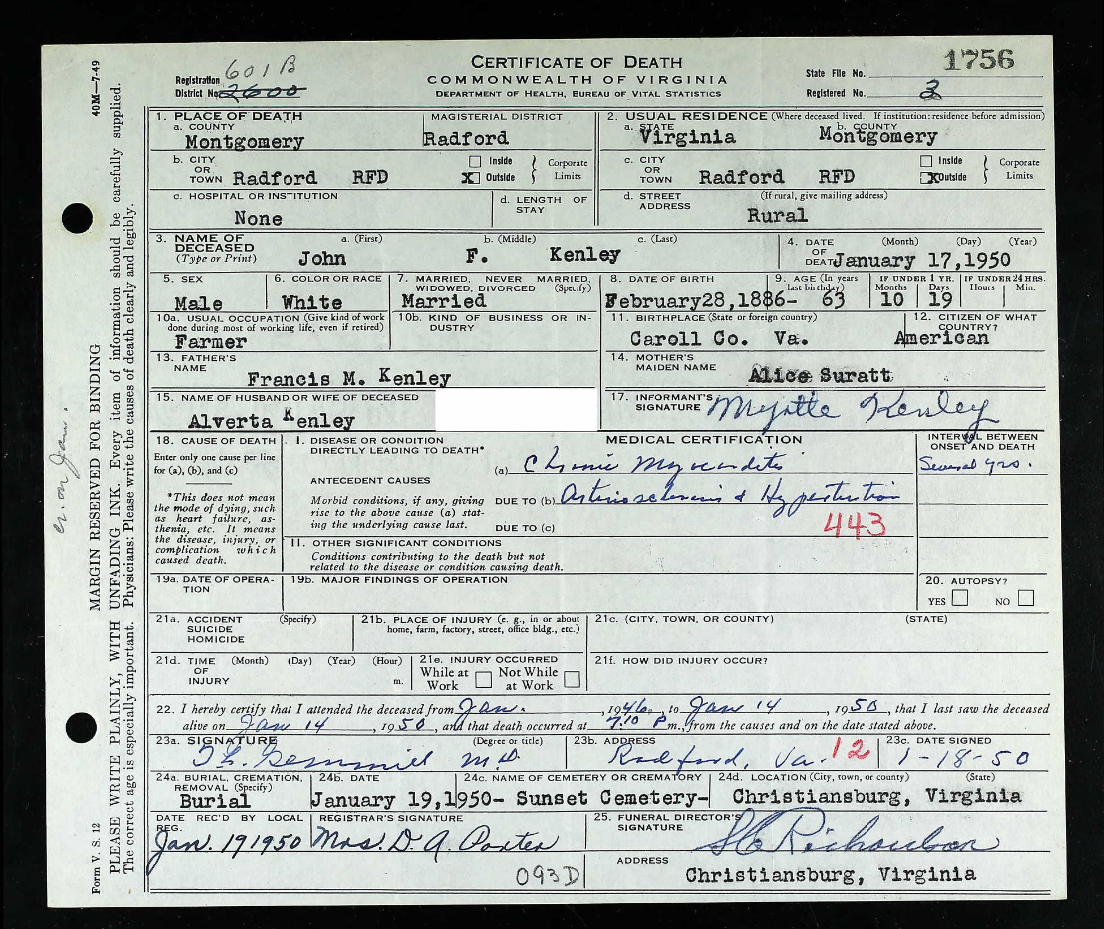 CERTIFICATE OF DEATH
COMMONWEALTH OF VIRGINIA
DEPARTMENT OF HEALTH, BUREAU OF VITAL STATISTICS
Registration District No. 2600 601B
State File No. 1756
Registered No. 3
40M—7-49
1. PLACE OF DEATH
a. COUNTY Montgomery
MAGISTERIAL DISTRICT Radford
2. USUAL RESIDENCE (Where deceased lived. If institution: residence before admission)
a. STATE Virginia
b. COUNTY Montgomery
b. CITY OR TOWN Radford RFD
Inside X Outside Corporate Limits
c. CITY OR TOWN Radford RFD
Inside X Outside Corporate Limits
c. HOSPITAL OR INSTITUTION None
d. LENGTH OF STAY
d. STREET ADDRESS (If rural, give mailing address) Rural
3. NAME OF DECEASED (Type or Print)
a. (First) John
b. (Middle) F.
c. (Last) Kenley
4. DATE OF DEATH (Month) (Day) (Year) January 17,1950
5. SEX Male
6. COLOR OR RACE White
7. MARRIED, NEVER MARRIED, WIDOWED, DIVORCED (Specify) Married
8. DATE OF BIRTH February28,1886-
9. AGE (In years last birthday) 63
IF UNDER 1 YR. Months 10 Days 19
IF UNDER 24 HRS. Hours Min.
10a. USUAL OCCUPATION (Give kind of work done during most of working life, even if retired) Farmer
10b. KIND OF BUSINESS OR INDUSTRY
11. BIRTHPLACE (State or foreign country) Caroll Co. Va.
12. CITIZEN OF WHAT COUNTRY? American
13. FATHER'S NAME Francis M. Kenley
14. MOTHER'S MAIDEN NAME Alice Suratt
15. NAME OF HUSBAND OR WIFE OF DECEASED Alverta Kenley
17. INFORMANT'S SIGNATURE Myrtle Kenley
18. CAUSE OF DEATH
Enter only one cause per line for (a), (b), and (c)
*This does not mean the mode of dying, such as heart failure, asthenia, etc. It means the disease, injury, or complication which caused death.
MEDICAL CERTIFICATION
INTERVAL BETWEEN ONSET AND DEATH
I. DISEASE OR CONDITION DIRECTLY LEADING TO DEATH*
(a) Chronic Myocarditis
Several yrs.
ANTECEDENT CAUSES
Morbid conditions, if any, giving rise to the above cause (a) stating the underlying cause last.
DUE TO (b) Arteriosclerosis & Hypertention
DUE TO (c)
443
II. OTHER SIGNIFICANT CONDITIONS
Conditions contributing to the death but not related to the disease or condition causing death.
19a. DATE OF OPERATION
19b. MAJOR FINDINGS OF OPERATION
20. AUTOPSY?
YES NO
21a. ACCIDENT SUICIDE HOMICIDE (Specify)
21b. PLACE OF INJURY (e. g., in or about home, farm, factory, street, office bldg., etc.)
21c. (CITY, TOWN, OR COUNTY) (STATE)
21d. TIME OF INJURY (Month) (Day) (Year) (Hour) m.
21e. INJURY OCCURRED
While at Work Not While at Work
21f. HOW DID INJURY OCCUR?
22. I hereby certify that I attended the deceased from Jan., 1946, to Jan 14, 1950, that I last saw the deceased
alive on Jan 14, 1950, and that death occurred at 7:10 P m., from the causes and on the date stated above.
23a. SIGNATURE (Degree or title) M.D.
23b. ADDRESS Radford, Va. 12
23c. DATE SIGNED 1-18-50
24a. BURIAL, CREMATION, REMOVAL (Specify) Burial
24b. DATE January 19,1950-
24c. NAME OF CEMETERY OR CREMATORY Sunset Cemetery-
24d. LOCATION (City, town, or county) (State) Christiansburg, Virginia
DATE REC'D BY LOCAL REG. Jan. 19 1950
REGISTRAR'S SIGNATURE Mrs. D. A. Porter
25. FUNERAL DIRECTOR'S SIGNATURE Richardson
ADDRESS Christiansburg, Virginia
093D
Form V. S. 12
MARGIN RESERVED FOR BINDING
PLEASE WRITE PLAINLY, WITH UNFADING INK. Every item of information should be carefully supplied.
The correct age is especially important. Physicians: Please write the causes of death clearly and legibly.